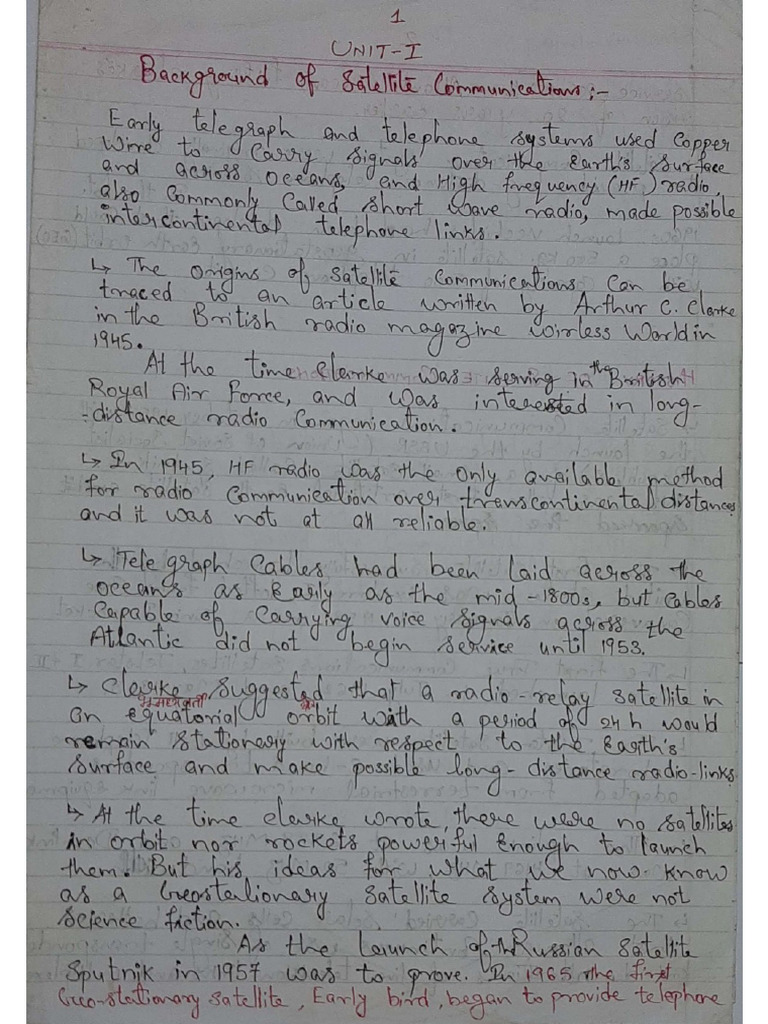 1
UNIT-I
Background of Satellite Communications:-
Early telegraph and telephone systems used Copper
Wire to Carry Signals over the Earth's Surface
and across oceans, and High frequency (HF) radio,
also Commonly Called Short Wave radio, made possible
intercontinental telephone links.
↳ The origins of Satellite Communications Can be
traced to an article written by Arthur C. Clarke
in the British radio magazine Wirless World in
1945.
At the time Clarke was serving in the British
Royal Air Force, and was interested in long-
-distance radio Communication.
↳ In 1945, HF radio was the only available method
for radio Communication over transcontinental distances
and it was not at all reliable.
↳ Telegraph Cables had been laid across the
oceans as Early as the mid-1800s, but Cables
Capable of Carrying voice Signals across the
Atlantic did not begin Service until 1953.
↳ Clarke Suggested that a radio-relay Satellite in
an equatorial orbit with a period of 24 h would
remain Stationary with respect to the Earth's
Surface and make possible long-distance radio-links
↳ At the time Clarke wrote, there were no Satellites
in orbit nor rockets powerful Enough to launch
them. But his ideas for what we now know
as a Geostationary Satellite System were not
Science fiction.
As the launch of the Russian Satellite
Sputnik in 1957 was to prove. In 1965 the first
Geo-stationary Satellite, Early bird, began to provide telephone